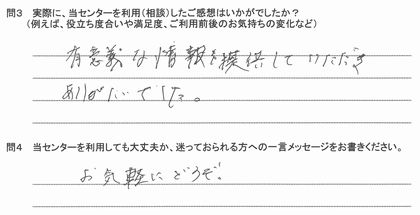 問3 実際に、当センターを利用(相談)したご感想はいかがでしたか?
(例えば、役立ち度合いや満足度、ご利用前後のお気持ちの変化など)
有意義な情報を提供していただき
ありがたいでした。
問4 当センターを利用しても大丈夫か、迷っておられる方への一言メッセージをお書きください。
お気軽にどうぞ。